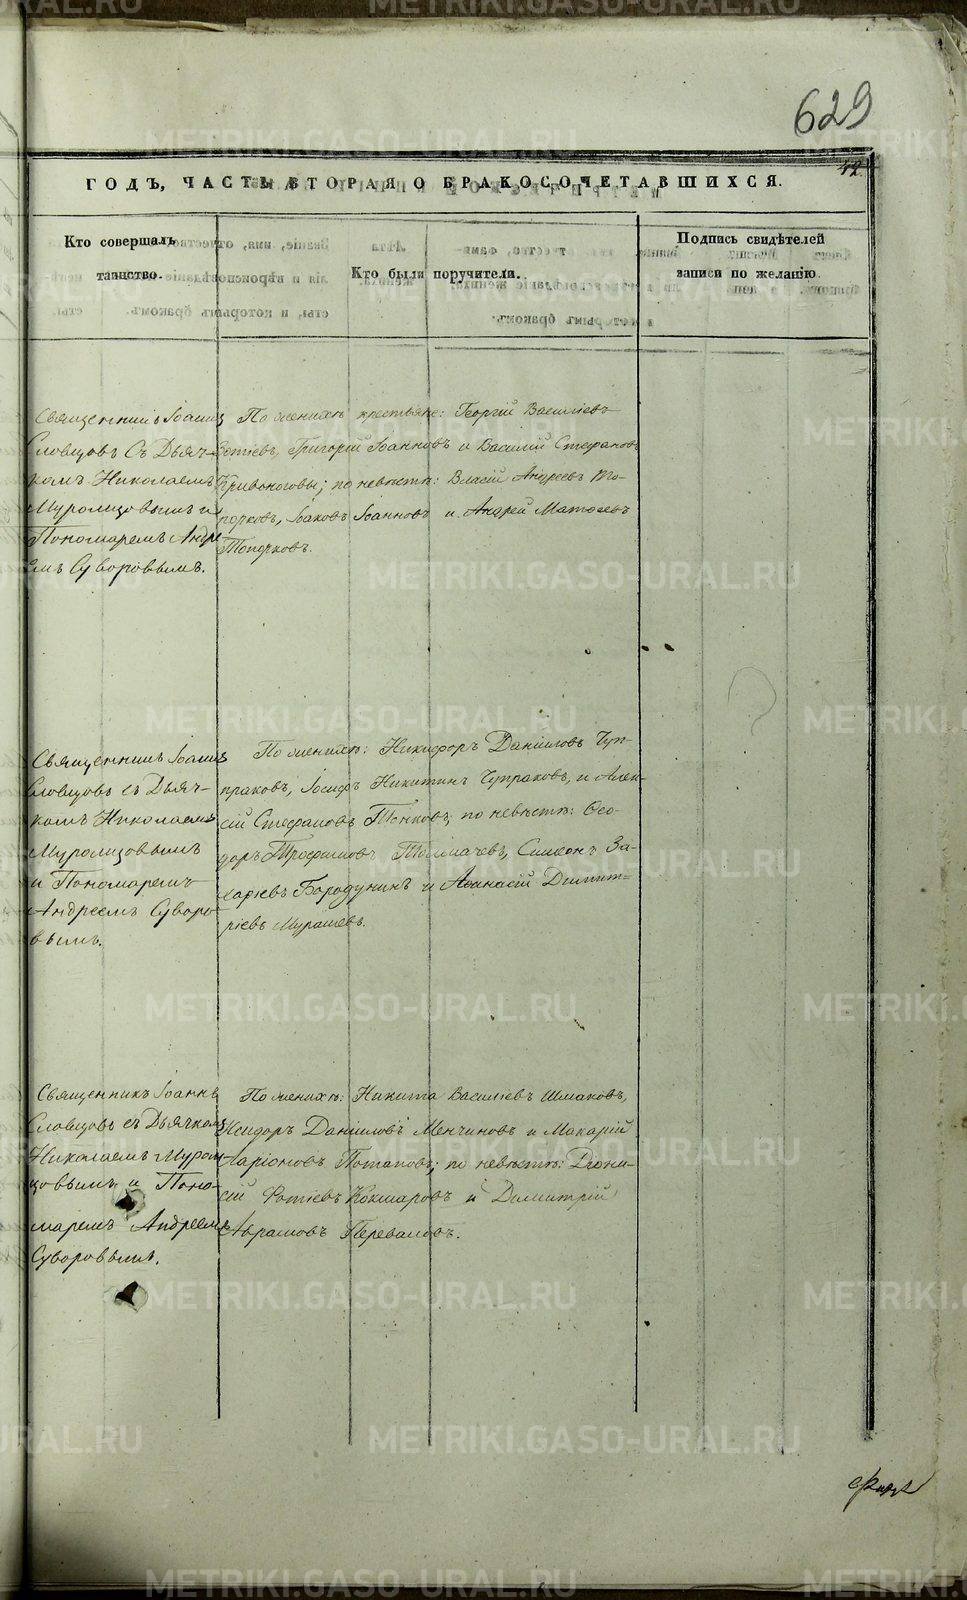 629
42
ГОДЪ, ЧАСТЬ ВТОРАЯ О БРАКОСОЧЕТАВШИХСЯ.
Кто совершалъ таинство.
Кто были поручители.
Подпись свидѣтелей записи по желанію.
Священникъ Іоаннъ
Словцовъ съ Дьяч-
комъ Николаемъ
Муромцовымъ и
Пономаремъ Андре
емъ Суворовымъ.
По женихѣ крестьяне: Георгій Василіевъ
Фотіевъ, Григорій Іоанновъ и Василій Стефановъ
Кривоноговы; по невѣстѣ: Власій Андреевъ То-
порковъ, Іаковъ Іоанновъ и Андрей Матѳеевъ
Топорковъ.
Священникъ Іоаннъ
Словцовъ съ Дьяч-
комъ Николаемъ
Муромцовымъ
и Пономаремъ
Андреемъ Суворо-
вымъ.
По женихѣ: Никифоръ Даніиловъ Чуп-
раковъ, Іосифъ Никитинъ Чупраковъ, и Алек-
сій Стефановъ Поповъ; по невѣстѣ: Ѳео-
доръ Трофимовъ Толмачевъ, Симеонъ За-
харіевъ Бородунинъ и Аѳанасій Димит-
ріевъ Мурашевъ.
Священникъ Іоаннъ
Словцовъ съ Дьячкомъ
Николаемъ Муром
цовымъ и Поно-
маремъ Андреемъ
Суворовымъ.
По женихѣ: Никита Василіевъ Шмаковъ,
Исидоръ Даніиловъ Менчиновъ и Макарій
Ларіоновъ Потаповъ; по невѣстѣ: Діони-
сій Фотіевъ Кокшаровъ и Димитрій
Аврамовъ Переваловъ.
METRIKI.GASO-URAL.RU